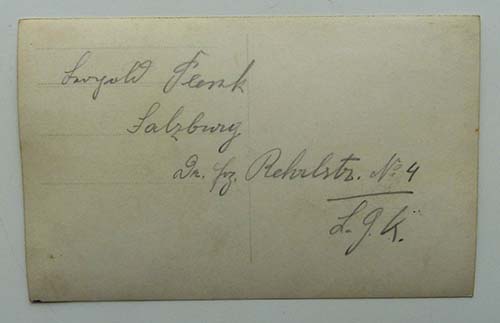 Leopold Plenk
Salzburg
Dr. frz. Rehrlstr. No 4
L. G. K.